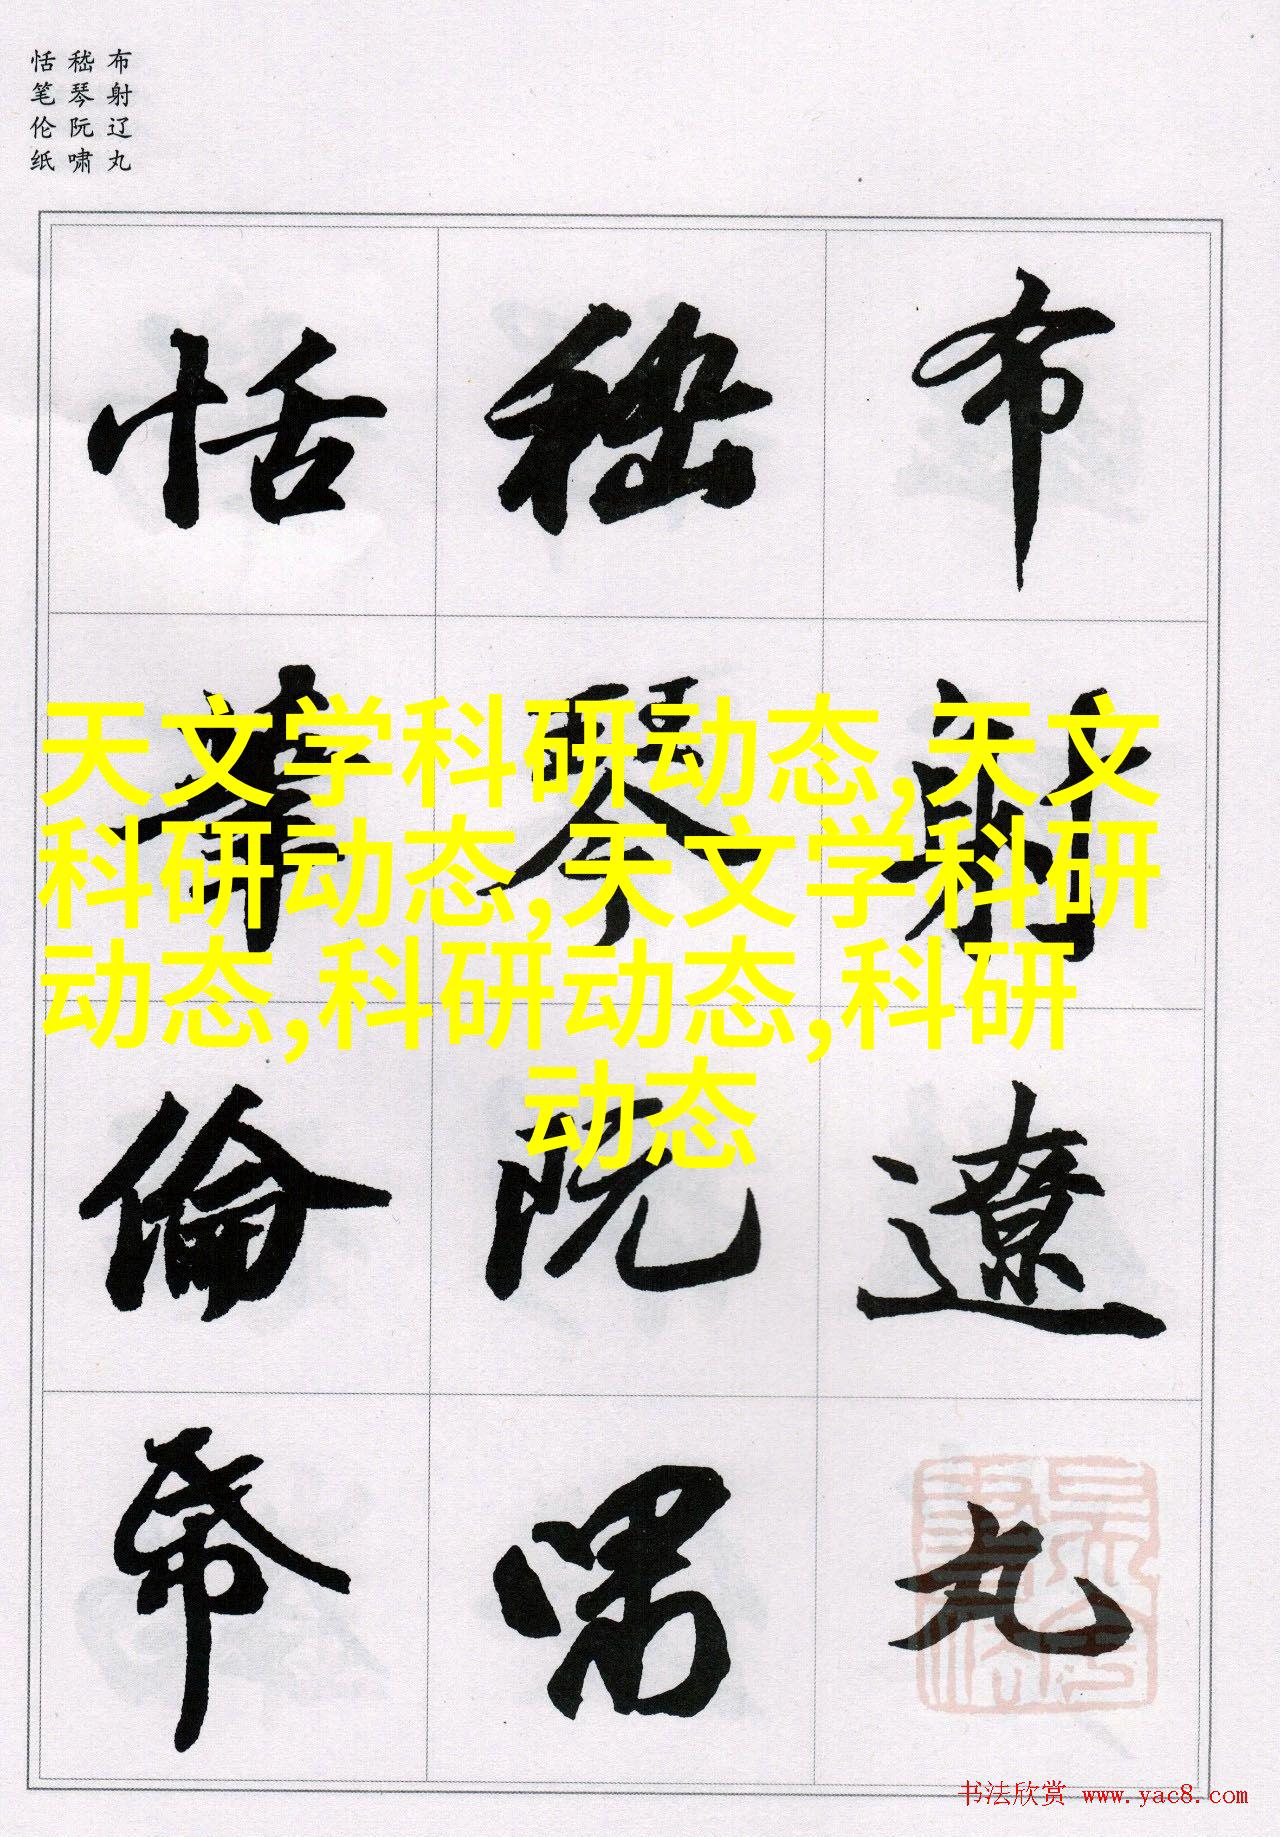 布射辽丸
嵇琴阮啸
恬笔伦纸
布射遼丸
嵇琴阮嘯
恬筆倫帋
天文学科研动态,天文
科研动态,天文学科研
动态,科研动态,科研
动态
书法欣赏 www.yac8.com